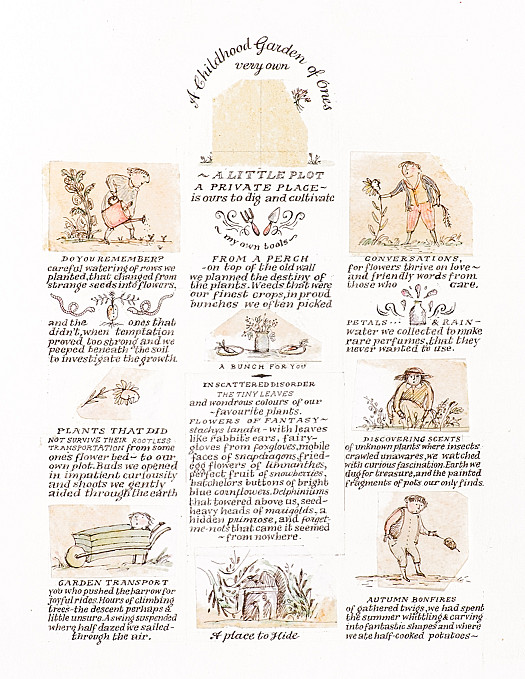 A Childhood Garden of Ones
very own
~ A LITTLE PLOT
A PRIVATE PLACE ~
is ours to dig and cultivate
~ my own tools ~
DO YOU REMEMBER?
careful watering of rows we
planted, that changed from
strange seeds into flowers,
and the ones that
didn't, when temptation
proved too strong and we
peeped beneath the soil
to investigate the growth.
PLANTS THAT DID
NOT SURVIVE THEIR ROOTLESS
TRANSPORTATION from some
ones flower bed ~ to our
own plot. Buds we opened
in impatient curiousity
and shoots we gently
aided through the earth
GARDEN TRANSPORT
you who pushed the barrow for
joyful rides. Hours of climbing
trees - the descent perhaps a
little unsure. A swing suspended
where half dazed we sailed -
through the air.
FROM A PERCH
- on top of the old wall
we planned the destiny of
the plants. Weeds that were
our finest crops, in proud
bunches we often picked
A BUNCH FOR YOU
IN SCATTERED DISORDER
THE TINY LEAVES
and wondrous colours of our
~ favourite plants.
FLOWERS OF FANTASY ~
stachys lanata - with leaves
like rabbit's ears, fairy-
gloves from foxgloves, mobile
faces of snapdragons, fried-
egg flowers of limnanthes,
perfect fruit of snowberries,
batchelors buttons of bright
blue cornflowers. Delphiniums
that towered above us, seed-
heavy heads of marigolds, a
hidden primrose, and forget-
me-nots that came it seemed
~ from nowhere.
A place to Hide
CONVERSATIONS,
for flowers thrive on love ~
and friendly words from
those who care.
PETALS ... & RAIN-
water we collected to make
rare perfumes, that they
never wanted to use.
DISCOVERING SCENTS
of unknown plants where insects
crawled unawares, we watched
with curious fascination. Earth we
dug for treasure, and the painted
fragments of pots our only finds.
AUTUMN BONFIRES
of gathered twigs, we had spent
the summer whittling & carving
into fantastic shapes and where
we ate half-cooked potatoes ~